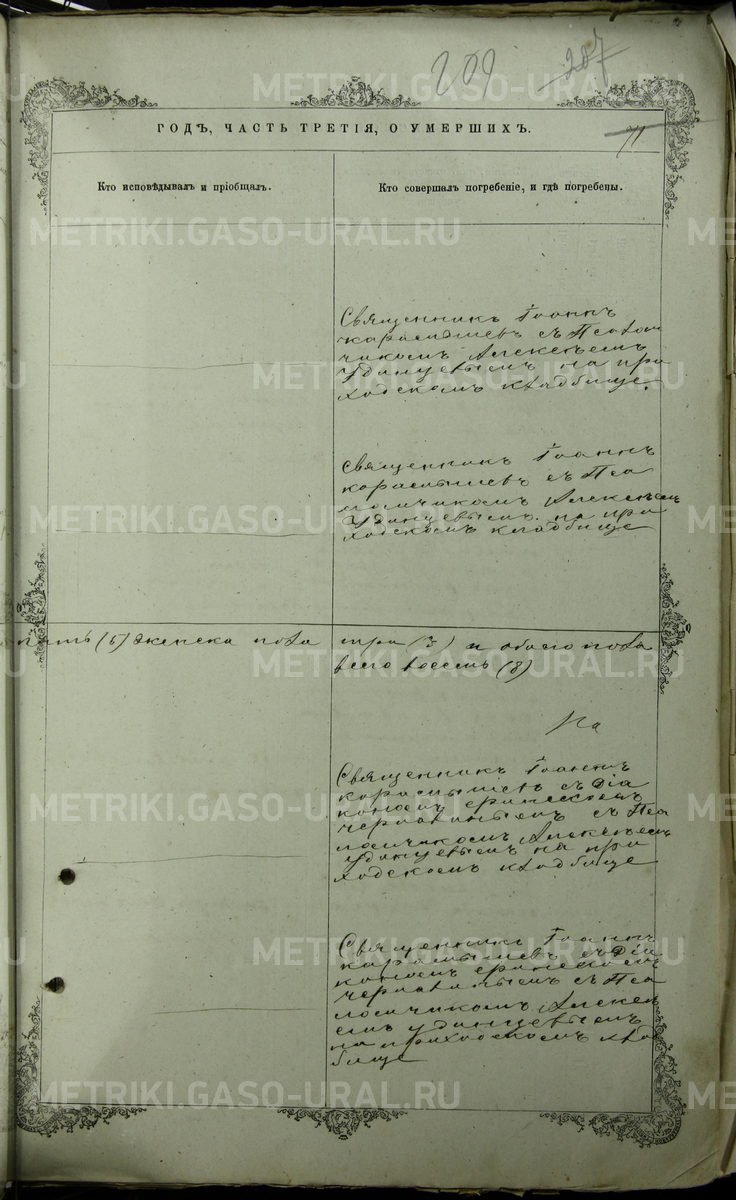 209
207
71
ГОДЪ, ЧАСТЬ ТРЕТІЯ, О УМЕРШИХЪ.
Кто исповѣдывалъ и пріобщалъ.
Кто совершалъ погребеніе, и гдѣ погребены.
Священникъ Іоаннъ
Карасышевъ съ Псалом
щикомъ Алексѣемъ
Удинцевымъ на при
ходскомъ кладбище.
Священникъ Іоаннъ
съ Пса
ломщикомъ Алексѣемъ
Удинцевымъ на при
ходскомъ кладбище
пять (5) женска пола три (3) и обоего пола
всего восемь (8)
Священникъ Іоаннъ
съ Діа
кономъ
съ Пса
ломщикомъ Алексѣемъ
Удинцевымъ на при
ходскомъ кладбище
Священникъ Іоаннъ
съ Діа
кономъ
съ Пса
ломщикомъ Алексѣ
емъ Удинцевымъ
на приходскомъ клад
бище
METRIKI.GASO-URAL.RU